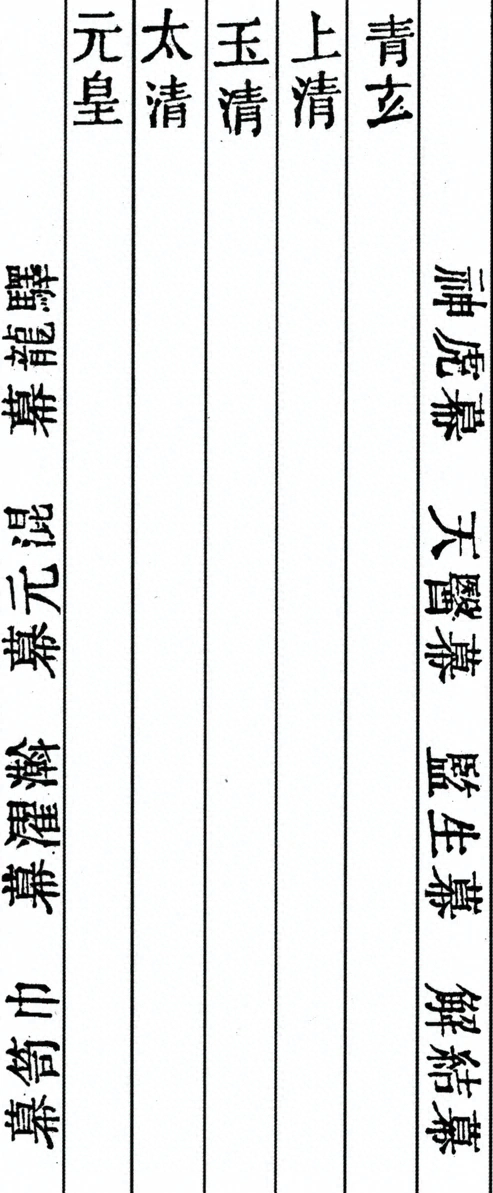 青玄
上清
玉清
太清
元皇
神虎幕
天醫幕
監生幕
解結幕
驛龍幕
混元幕
澣濯幕
巾笥幕